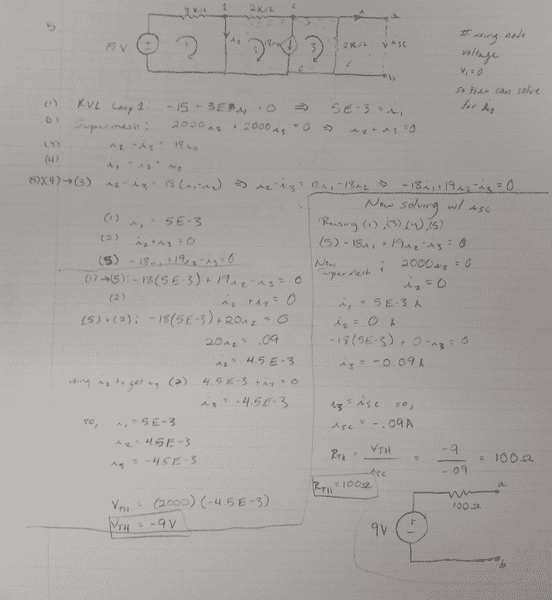 5
3KΩ 1 2KΩ 2
a
15 V 1 i₀ 2 18i₀ 3 2KΩ iSC
b
# using node
voltage
v₁=0
so then can solve
for i₀
(1) KVL Loop 1: -15 + 3E3i₁ = 0 ⇒ 5E-3 = i₁
(2) Supermesh: 2000i₂ + 2000i₃ = 0 ⇒ i₂ + i₃ = 0
(3) i₂ - i₃ = 18i₀
(4) i₁ - i₂ = i₀
(5)(4)→(3) i₂ - i₃ = 18(i₁-i₂) ⇒ i₂-i₃ = 18i₁-18i₂ ⇒ -18i₁+19i₂-i₃ = 0
(1) i₁ = 5E-3
(2) i₂ + i₃ = 0
(5) -18i₁+19i₂-i₃=0
(1)→(5): -18(5E-3) + 19i₂ - i₃ = 0
(2) i₂ + i₃ = 0
(5)+(2): -18(5E-3)+20i₂ = 0
20i₂ = .09
i₂ = 4.5E-3
using i₂ to get i₃ (2) 4.5E-3 + i₃ = 0
i₃ = -4.5E-3
so, i₁ = 5E-3
i₂ = 4.5E-3
i₃ = -4.5E-3
VTH = (2000)(-4.5E-3)
VTH = -9V
Now solving w/ iSC
Reusing (1),(3),(4),(5)
(5) -18i₁ + 19i₂ - i₃ = 0
New
Supermesh: 2000i₂ = 0
i₂ = 0
i₁ = 5E-3 A
i₂ = 0 A
-18(5E-3) + 0 - i₃ = 0
i₃ = -0.09A
i₃ = iSC so,
iSC = -.09A
RTH = VTH / iSC = -9 / -.09 = 100Ω
RTH = 100Ω
a
100Ω
9V
b